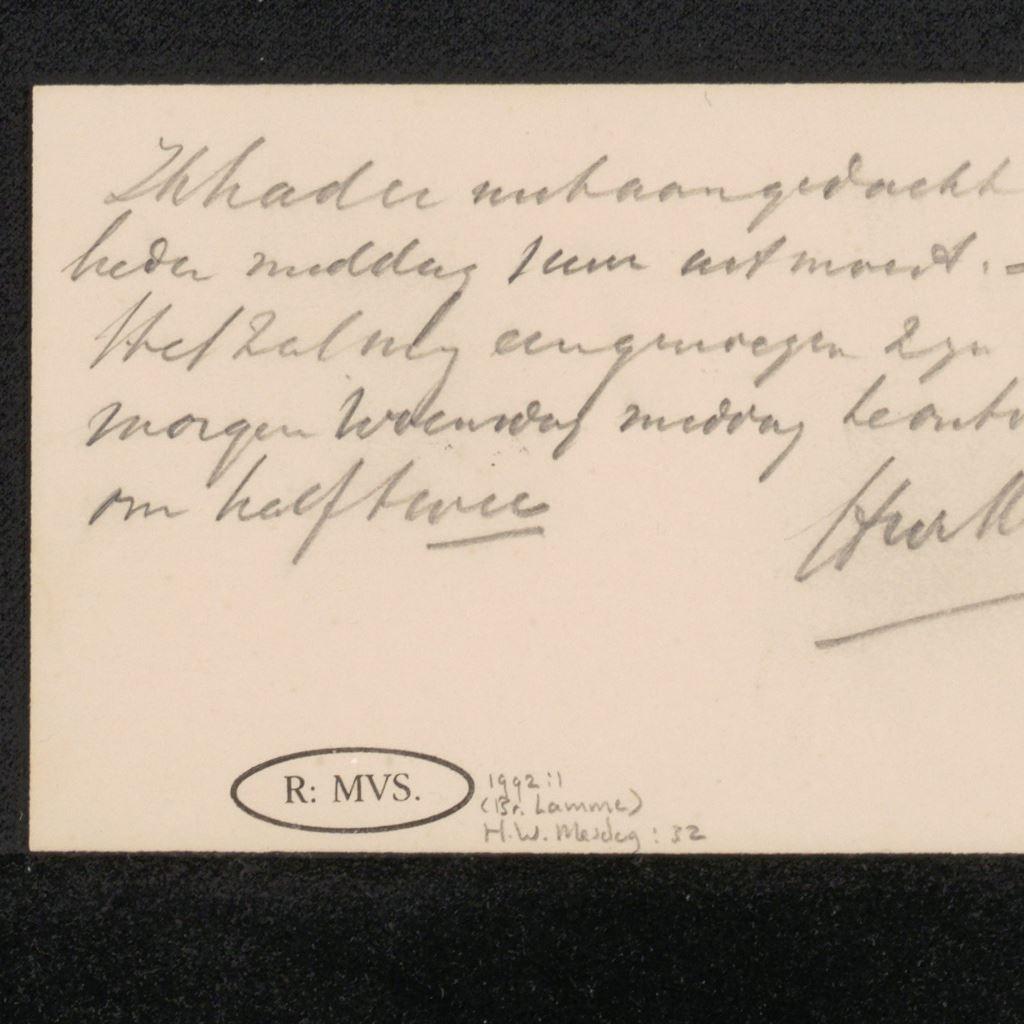 Ik had er niet aan gedacht
heden middag
Het zal mij een genoegen zijn
morgen Woensdag middag te ontv
om half twee
R: MVS.
1992:1
(Br. Lamme)
H.W. Mesdag: 32